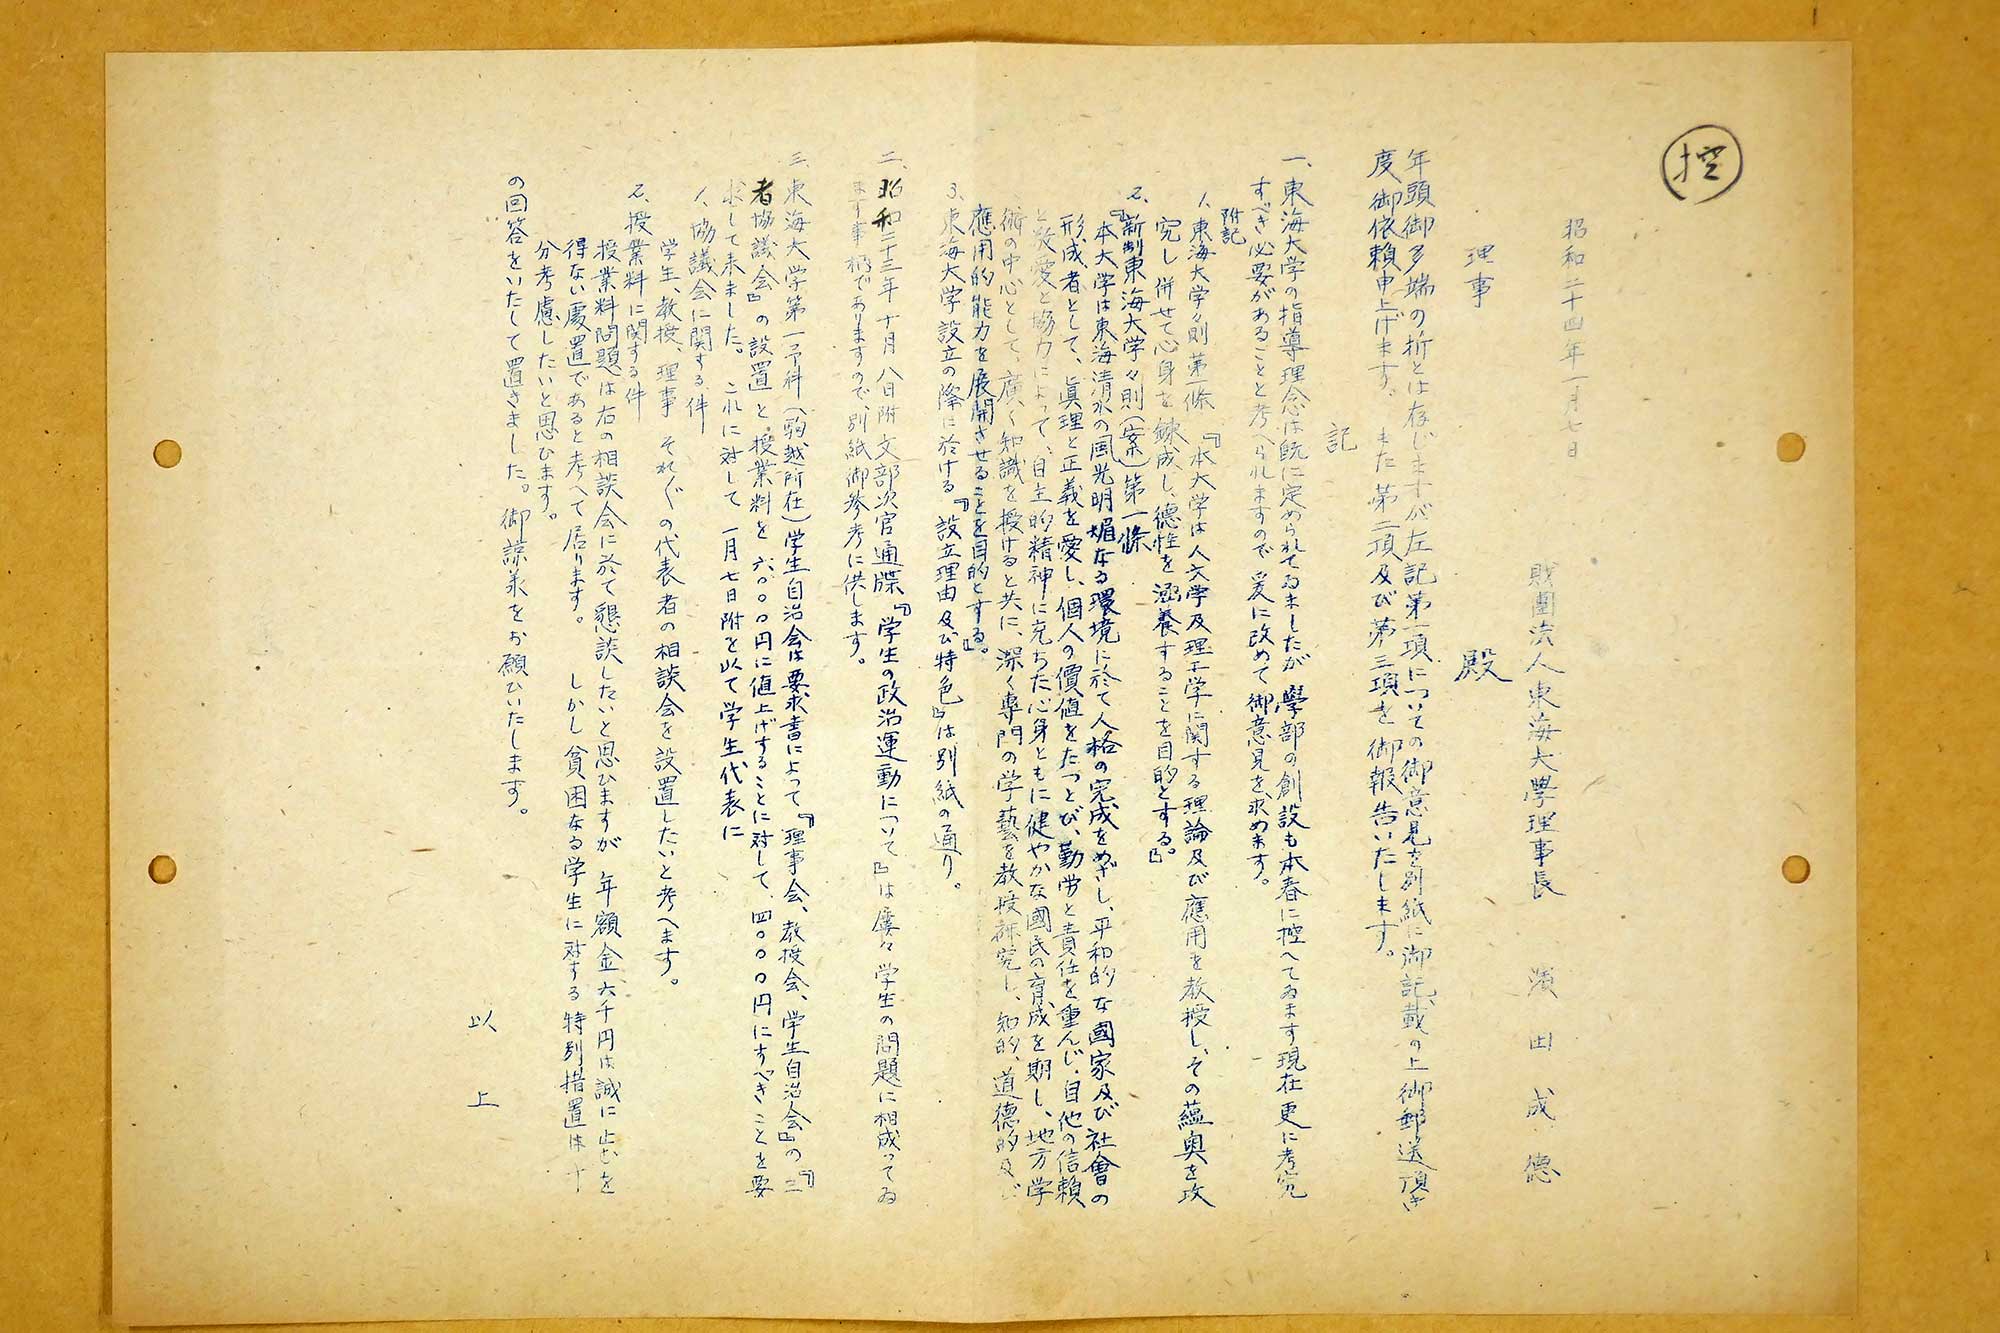 控
昭和二十四年一月七日
財團法人東海大學理事長　濱田成徳
理事　　　　殿
年頭御多端の折とは存じますが左記第一項についての御意見を別紙に御記載の上御郵送頂き
度御依頼申上げます。また第二項及び第三項を御報告いたします。
記
一、東海大学の指導理念は既に定められてゐましたが學部の創設も本春に控へてゐます現在更に考究
すべき必要があることと考へられますので爰に改めて御意見を求めます。
附記
1、東海大学々則第一條『本大学は人文学及理工学に関する理論及び應用を教授し、その蘊奥を攻
究し併せて心身を錬成し、徳性を涵養することを目的とする。』
2、新制東海大学々則（案）第一條
『本大学は東海清水の風光明媚なる環境に於て人格の完成をめざし、平和的な國家及び社會の
形成者として、眞理と正義を愛し、個人の價値をたつとび、勤労と責任を重んじ、自他の信頼
と敬愛と協力によって、自主的精神に充ちた心身ともに健やかな國民の育成を期し、地方学
術の中心として、廣く知識を授けると共に、深く專門の学藝を教授研究し、知的、道德的及び
應用的能力を展開させることを目的とする。』
3、東海大学設立の際に於ける『設立理由及び特色』は別紙の通り。
二、昭和二十三年十月八日附文部次官通牒『学生の政治運動について』は屡々学生の問題に相成ってゐ
ます事柄でありますので、別紙御参考に供します。
三、東海大学第一予科（駒越所在）学生自治会は要求書によって『理事会、教授会、学生自治会』の『三
者協議会』の設置と授業料を六〇〇〇円に値上げすることに対して、四〇〇〇円にすべきことを要
求して来ました。これに対して一月七日附を以て学生代表に
1、協議会に関する件
学生、教授、理事それぞれの代表者の相談会を設置したいと考へます。
2、授業料に関する件
授業料問題は右の相談会に於て懇談したいと思ひますが年額金六千円は誠に止むを
得ない處置であると考へて居ります。しかし貧困なる学生に対する特別措置は十
分考慮したいと思ひます。
の回答をいたして置きました。御諒承をお願ひいたします。
以上